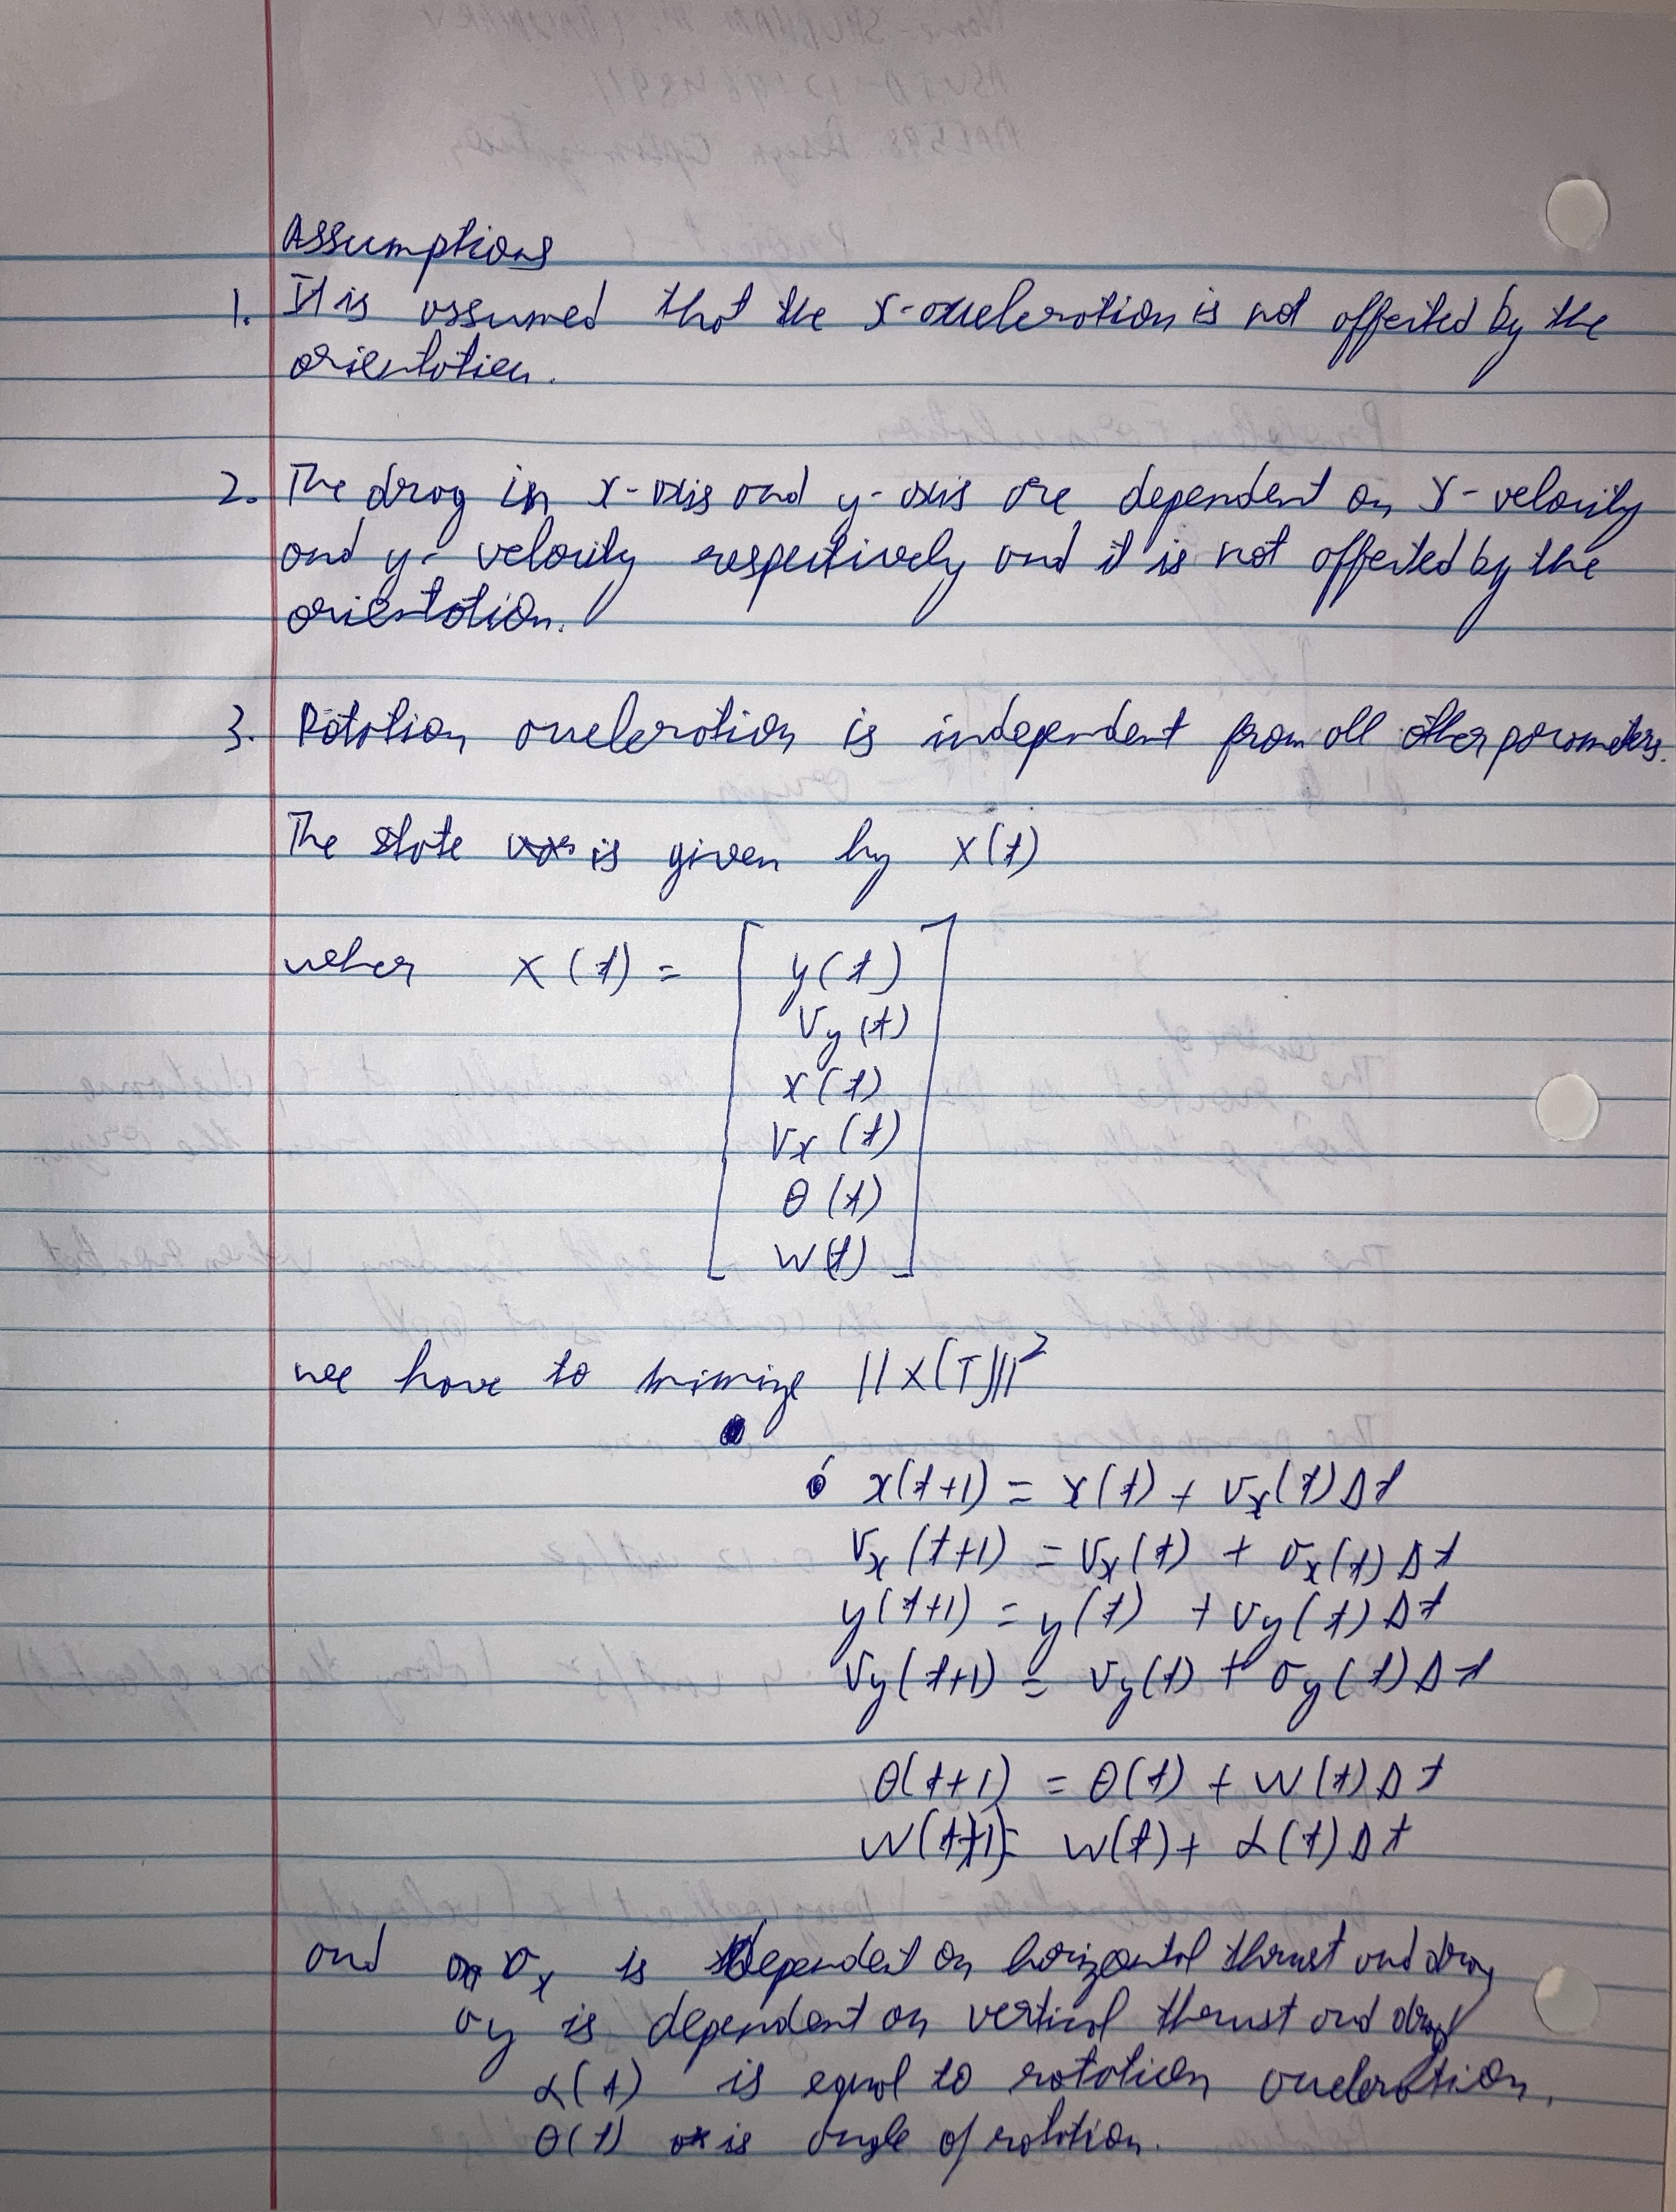 Assumptions
1. It is assumed that the x-acceleration is not affected by the
orientation.
2. The drag in x-axis and y-axis are dependent on x-velocity
and y-velocity respectively and it is not affected by the
orientation.
3. Rotation acceleration is independent from all other parameters.
The state is given by X(t)
wher X(t) = [ y(t)
Vy(t)
x(t)
Vx(t)
θ(t)
w(t) ]
we have to minimize ||X(T)||²
x(t+1) = x(t) + vx(t)Δt
vx(t+1) = vx(t) + ax(t)Δt
y(t+1) = y(t) + vy(t)Δt
vy(t+1) = vy(t) + ay(t)Δt
θ(t+1) = θ(t) + w(t)Δt
w(t+1) = w(t) + α(t)Δt
and ax is dependent on horizontal thrust and drag
ay is dependent on vertical thrust and drag
α(t) is equal to rotation acceleration.
θ(t) is angle of rotation.